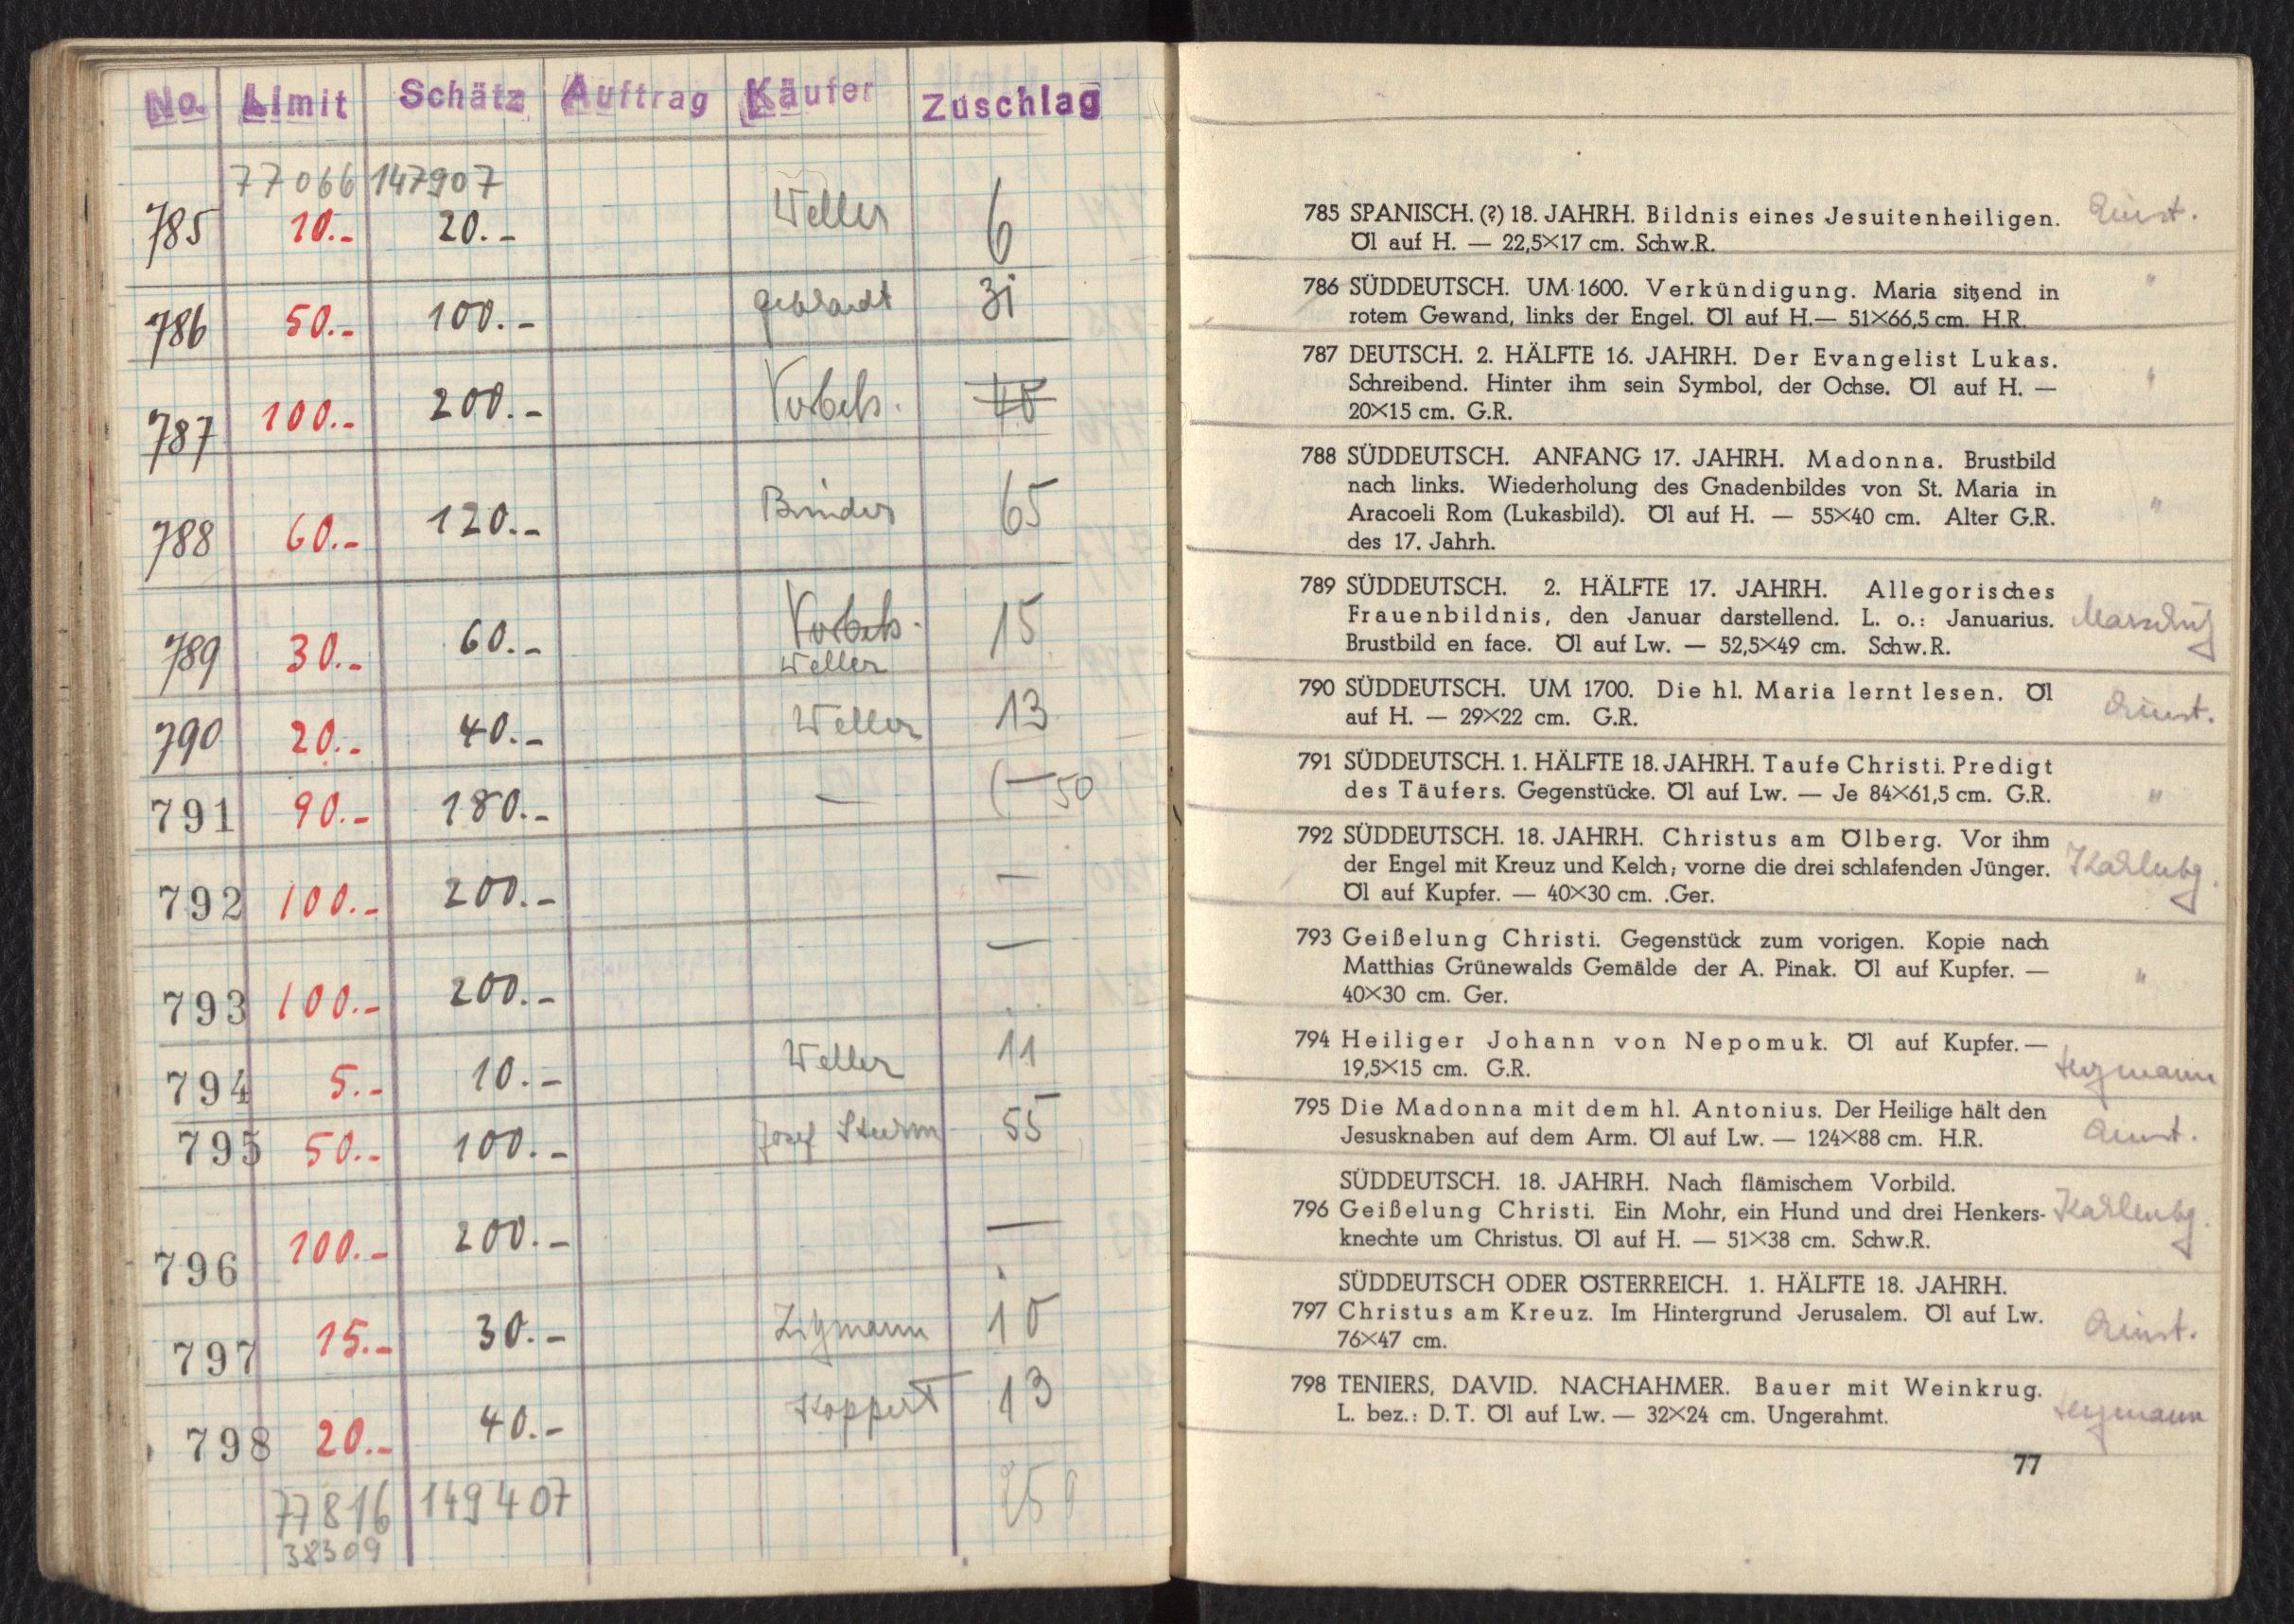 No. Limit Schätz Auftrag Käufer Zuschlag
77066 147907
785 10.- 20.- Weller 6
786 50.- 100.- Gebhardt 31
787 100.- 200.-
788 60.- 120.- Binder 65
789 30.- 60.- 15
Weller
790 20.- 40.- Weller 13
791 90.- 180.- — (— 50
792 100.- 200.- —
793 100.- 200.- —
794 5.- 10.- Weller 11
795 50.- 100.- Josef Sturm 55
796 100.- 200.- —
797 15.- 30.- Zigmann 10
798 20.- 40.- Koppert 13
77816 149407 259
38309
785 SPANISCH. (?) 18. JAHRH. Bildnis eines Jesuitenheiligen.
Öl auf H. — 22,5×17 cm. Schw.R.
786 SÜDDEUTSCH. UM 1600. Verkündigung. Maria sitzend in "
rotem Gewand, links der Engel. Öl auf H.— 51×66,5 cm. H.R.
787 DEUTSCH. 2. HÄLFTE 16. JAHRH. Der Evangelist Lukas.
Schreibend. Hinter ihm sein Symbol, der Ochse. Öl auf H. — "
20×15 cm. G.R.
788 SÜDDEUTSCH. ANFANG 17. JAHRH. Madonna. Brustbild
nach links. Wiederholung des Gnadenbildes von St. Maria in
Aracoeli Rom (Lukasbild). Öl auf H. — 55×40 cm. Alter G.R. "
des 17. Jahrh.
789 SÜDDEUTSCH. 2. HÄLFTE 17. JAHRH. Allegorisches
Frauenbildnis, den Januar darstellend. L. o.: Januarius.
Brustbild en face. Öl auf Lw. — 52,5×49 cm. Schw.R.
790 SÜDDEUTSCH. UM 1700. Die hl. Maria lernt lesen. Öl
auf H. — 29×22 cm. G.R.
791 SÜDDEUTSCH. 1. HÄLFTE 18. JAHRH. Taufe Christi. Predigt
des Täufers. Gegenstücke. Öl auf Lw. — Je 84×61,5 cm. G.R. "
792 SÜDDEUTSCH. 18. JAHRH. Christus am Ölberg. Vor ihm
der Engel mit Kreuz und Kelch; vorne die drei schlafenden Jünger. Karlubg.
Öl auf Kupfer. — 40×30 cm. .Ger.
793 Geißelung Christi. Gegenstück zum vorigen. Kopie nach
Matthias Grünewalds Gemälde der A. Pinak. Öl auf Kupfer. — "
40×30 cm. Ger.
794 Heiliger Johann von Nepomuk. Öl auf Kupfer. —
19,5×15 cm. G.R.
795 Die Madonna mit dem hl. Antonius. Der Heilige hält den
Jesusknaben auf dem Arm. Öl auf Lw. — 124×88 cm. H.R.
SÜDDEUTSCH. 18. JAHRH. Nach flämischem Vorbild.
796 Geißelung Christi. Ein Mohr, ein Hund und drei Henkers- Karlenbg.
knechte um Christus. Öl auf H. — 51×38 cm. Schw.R.
SÜDDEUTSCH ODER ÖSTERREICH. 1. HÄLFTE 18. JAHRH.
797 Christus am Kreuz. Im Hintergrund Jerusalem. Öl auf Lw.
76×47 cm.
798 TENIERS, DAVID. NACHAHMER. Bauer mit Weinkrug.
L. bez.: D. T. Öl auf Lw. — 32×24 cm. Ungerahmt.
77